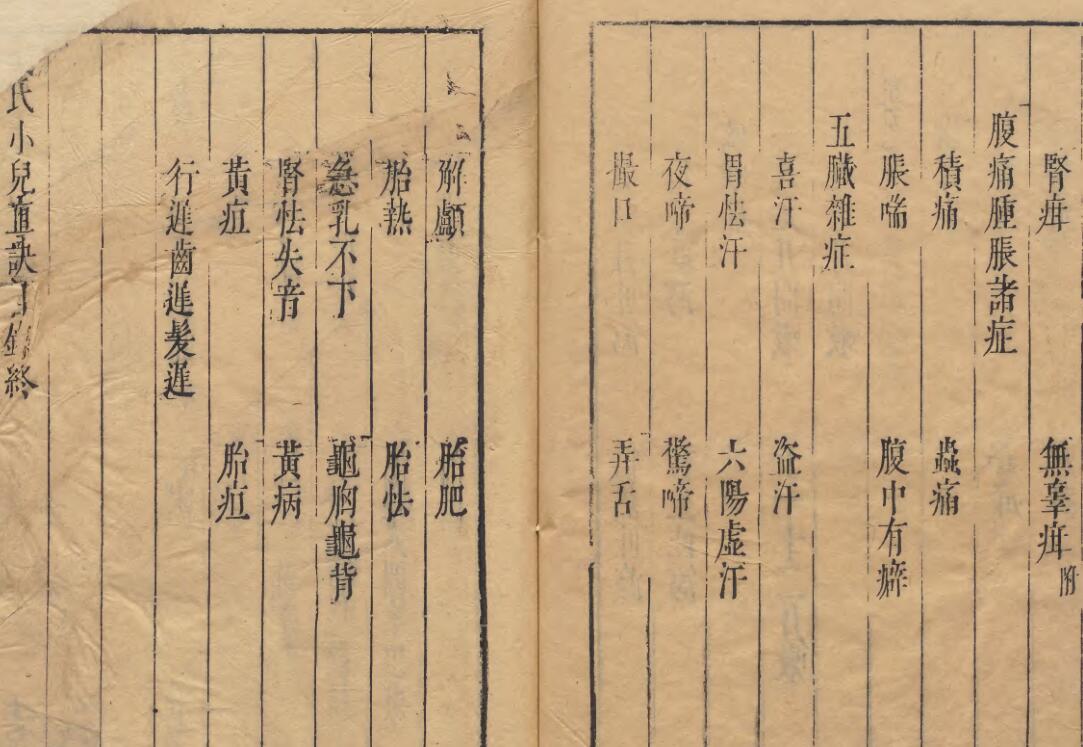 腎疳 無辜疳附
腹痛腫脹諸症
積痛 蟲痛
脹喘 腹中有癖
五臟雜症
喜汗 盜汗
胃怯汗 六陽虛汗
夜啼 驚啼
撮口 弄舌
解顱 胎肥
胎熱 胎怯
急乳不下 龜胸龜背
腎怯失音 黃病
黃疸 胎疸
行遲齒遲髮遲
氏小兒直訣目錄終